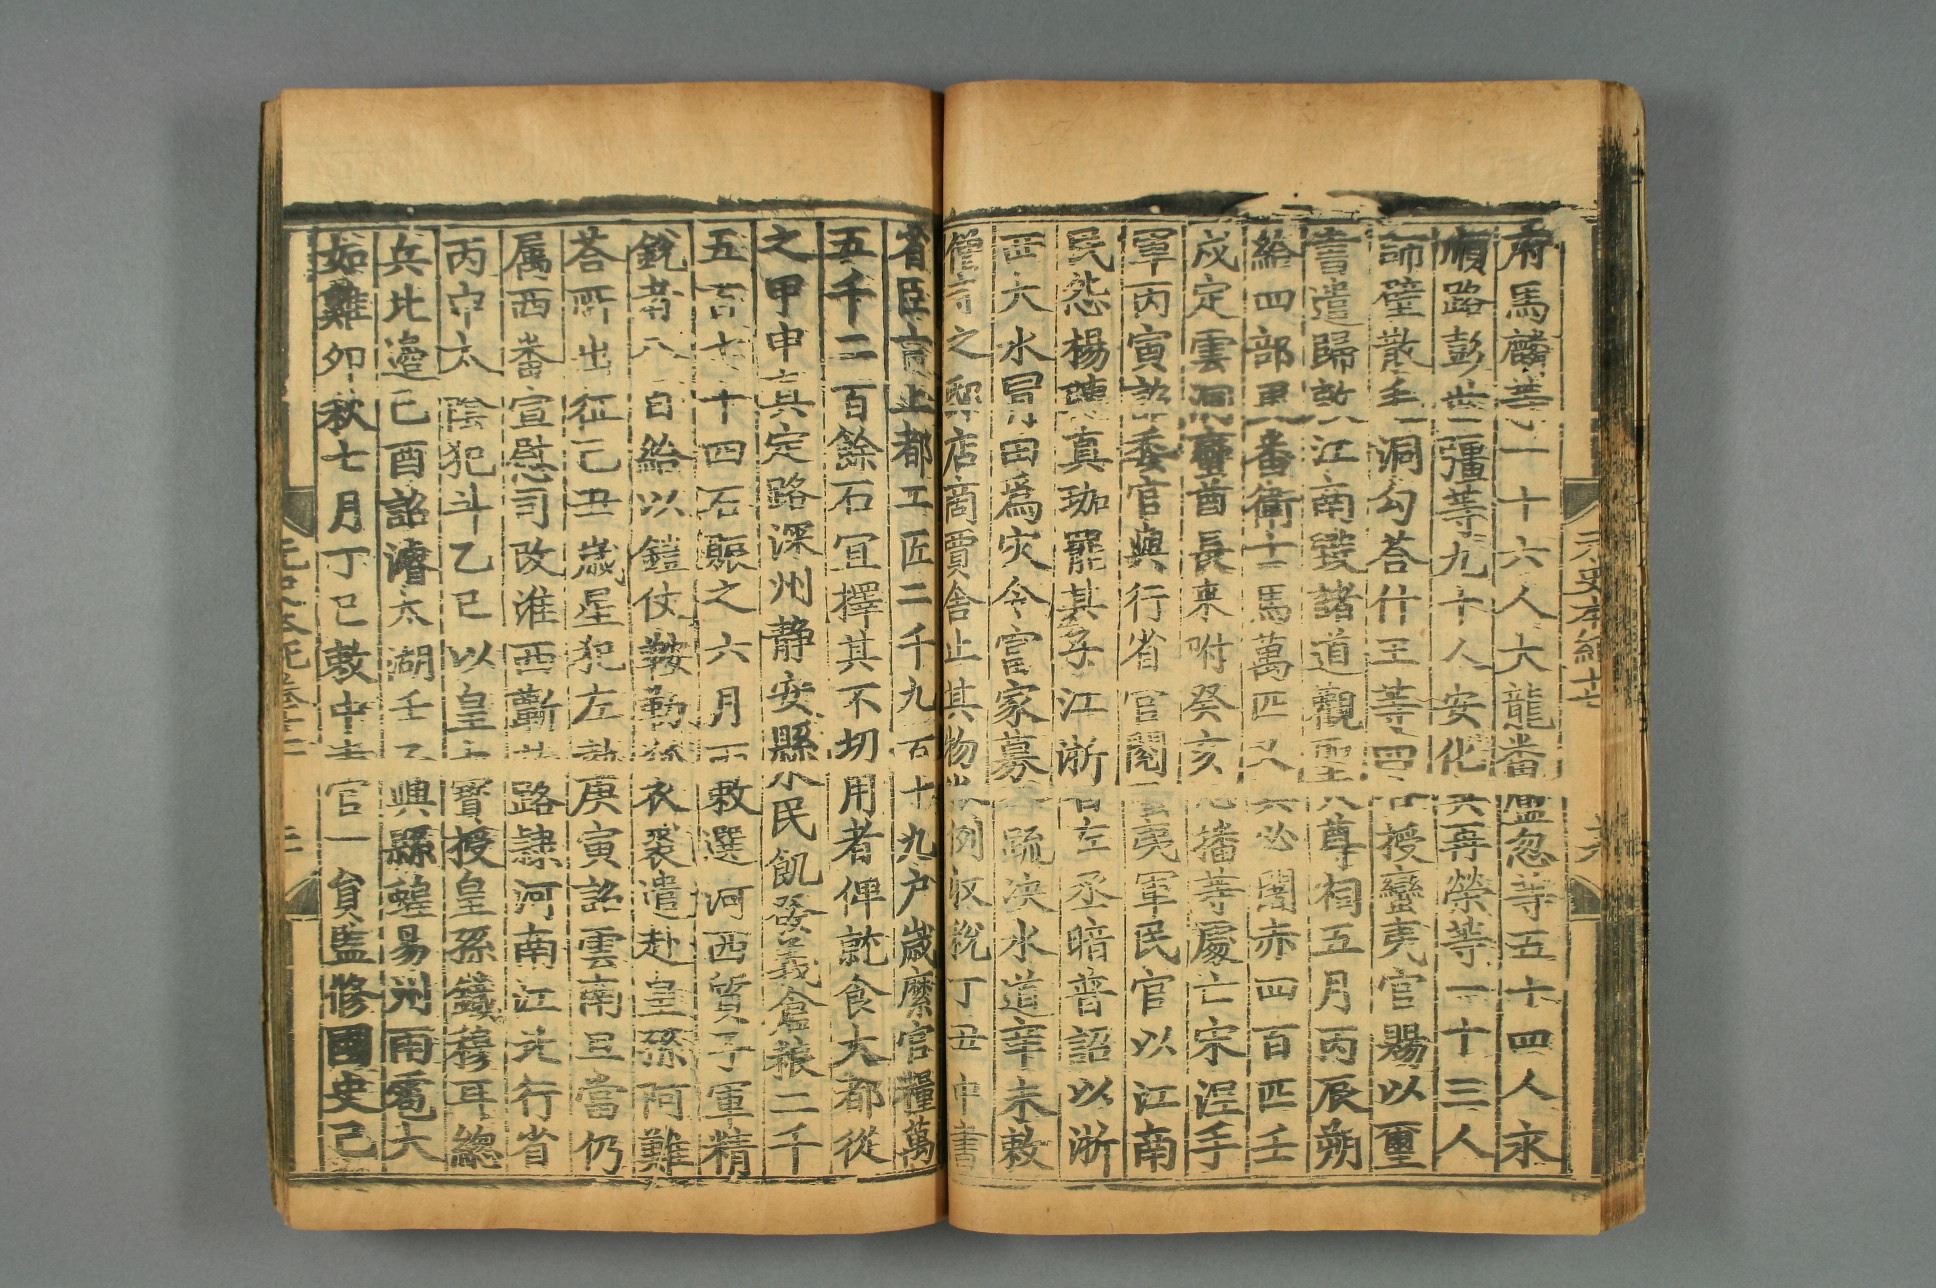 府馬麟等一十六人大龍番盟忽等五十四人永
順路彭世彊等九十人安化吳再榮等一十三人
師壁散毛洞勾荅什王等四各授蠻夷官賜以璽
書遣歸敕江南發諸道觀聖尊祠五月丙辰朔
給四部更番衛士馬萬匹又其必闍赤四百匹壬
戍定雲洞蠻酋長來附癸亥思播等處亡宋涅手
軍丙寅敕委官與行省官閱雲夷軍民官以江南
民怨楊璉真珈罷其子江浙左丞暗普詔以浙
西大水冒田為灾令富家募疏決水道辛未敕
僧寺之邸店商賈舍止其物例収稅丁丑中書
省臣言上都工匠二千九百九十九户歲縻官糧萬
五千二百餘石宜擇其不切用者俾就食大都從
之甲申真定路深州静安縣水民飢發義倉粮二千
五百七十四石賑之六月丙敕選河西質子軍精
銳者八百給以鎧仗鞍勒衣裘遣赴皇孫阿難
荅所出征己丑歲星犯左執庚寅詔雲南旦當仍
属西番宣慰司改淮西蘄路隷河南江北行省
丙申太陰犯斗乙巳以皇寶授皇孫鐵穆耳總
兵北邊己酉詔濬太湖壬子興縣蝗易州雨雹大
如雞卯秋七月丁巳敕中書官一員監修國史己
元史本紀十七